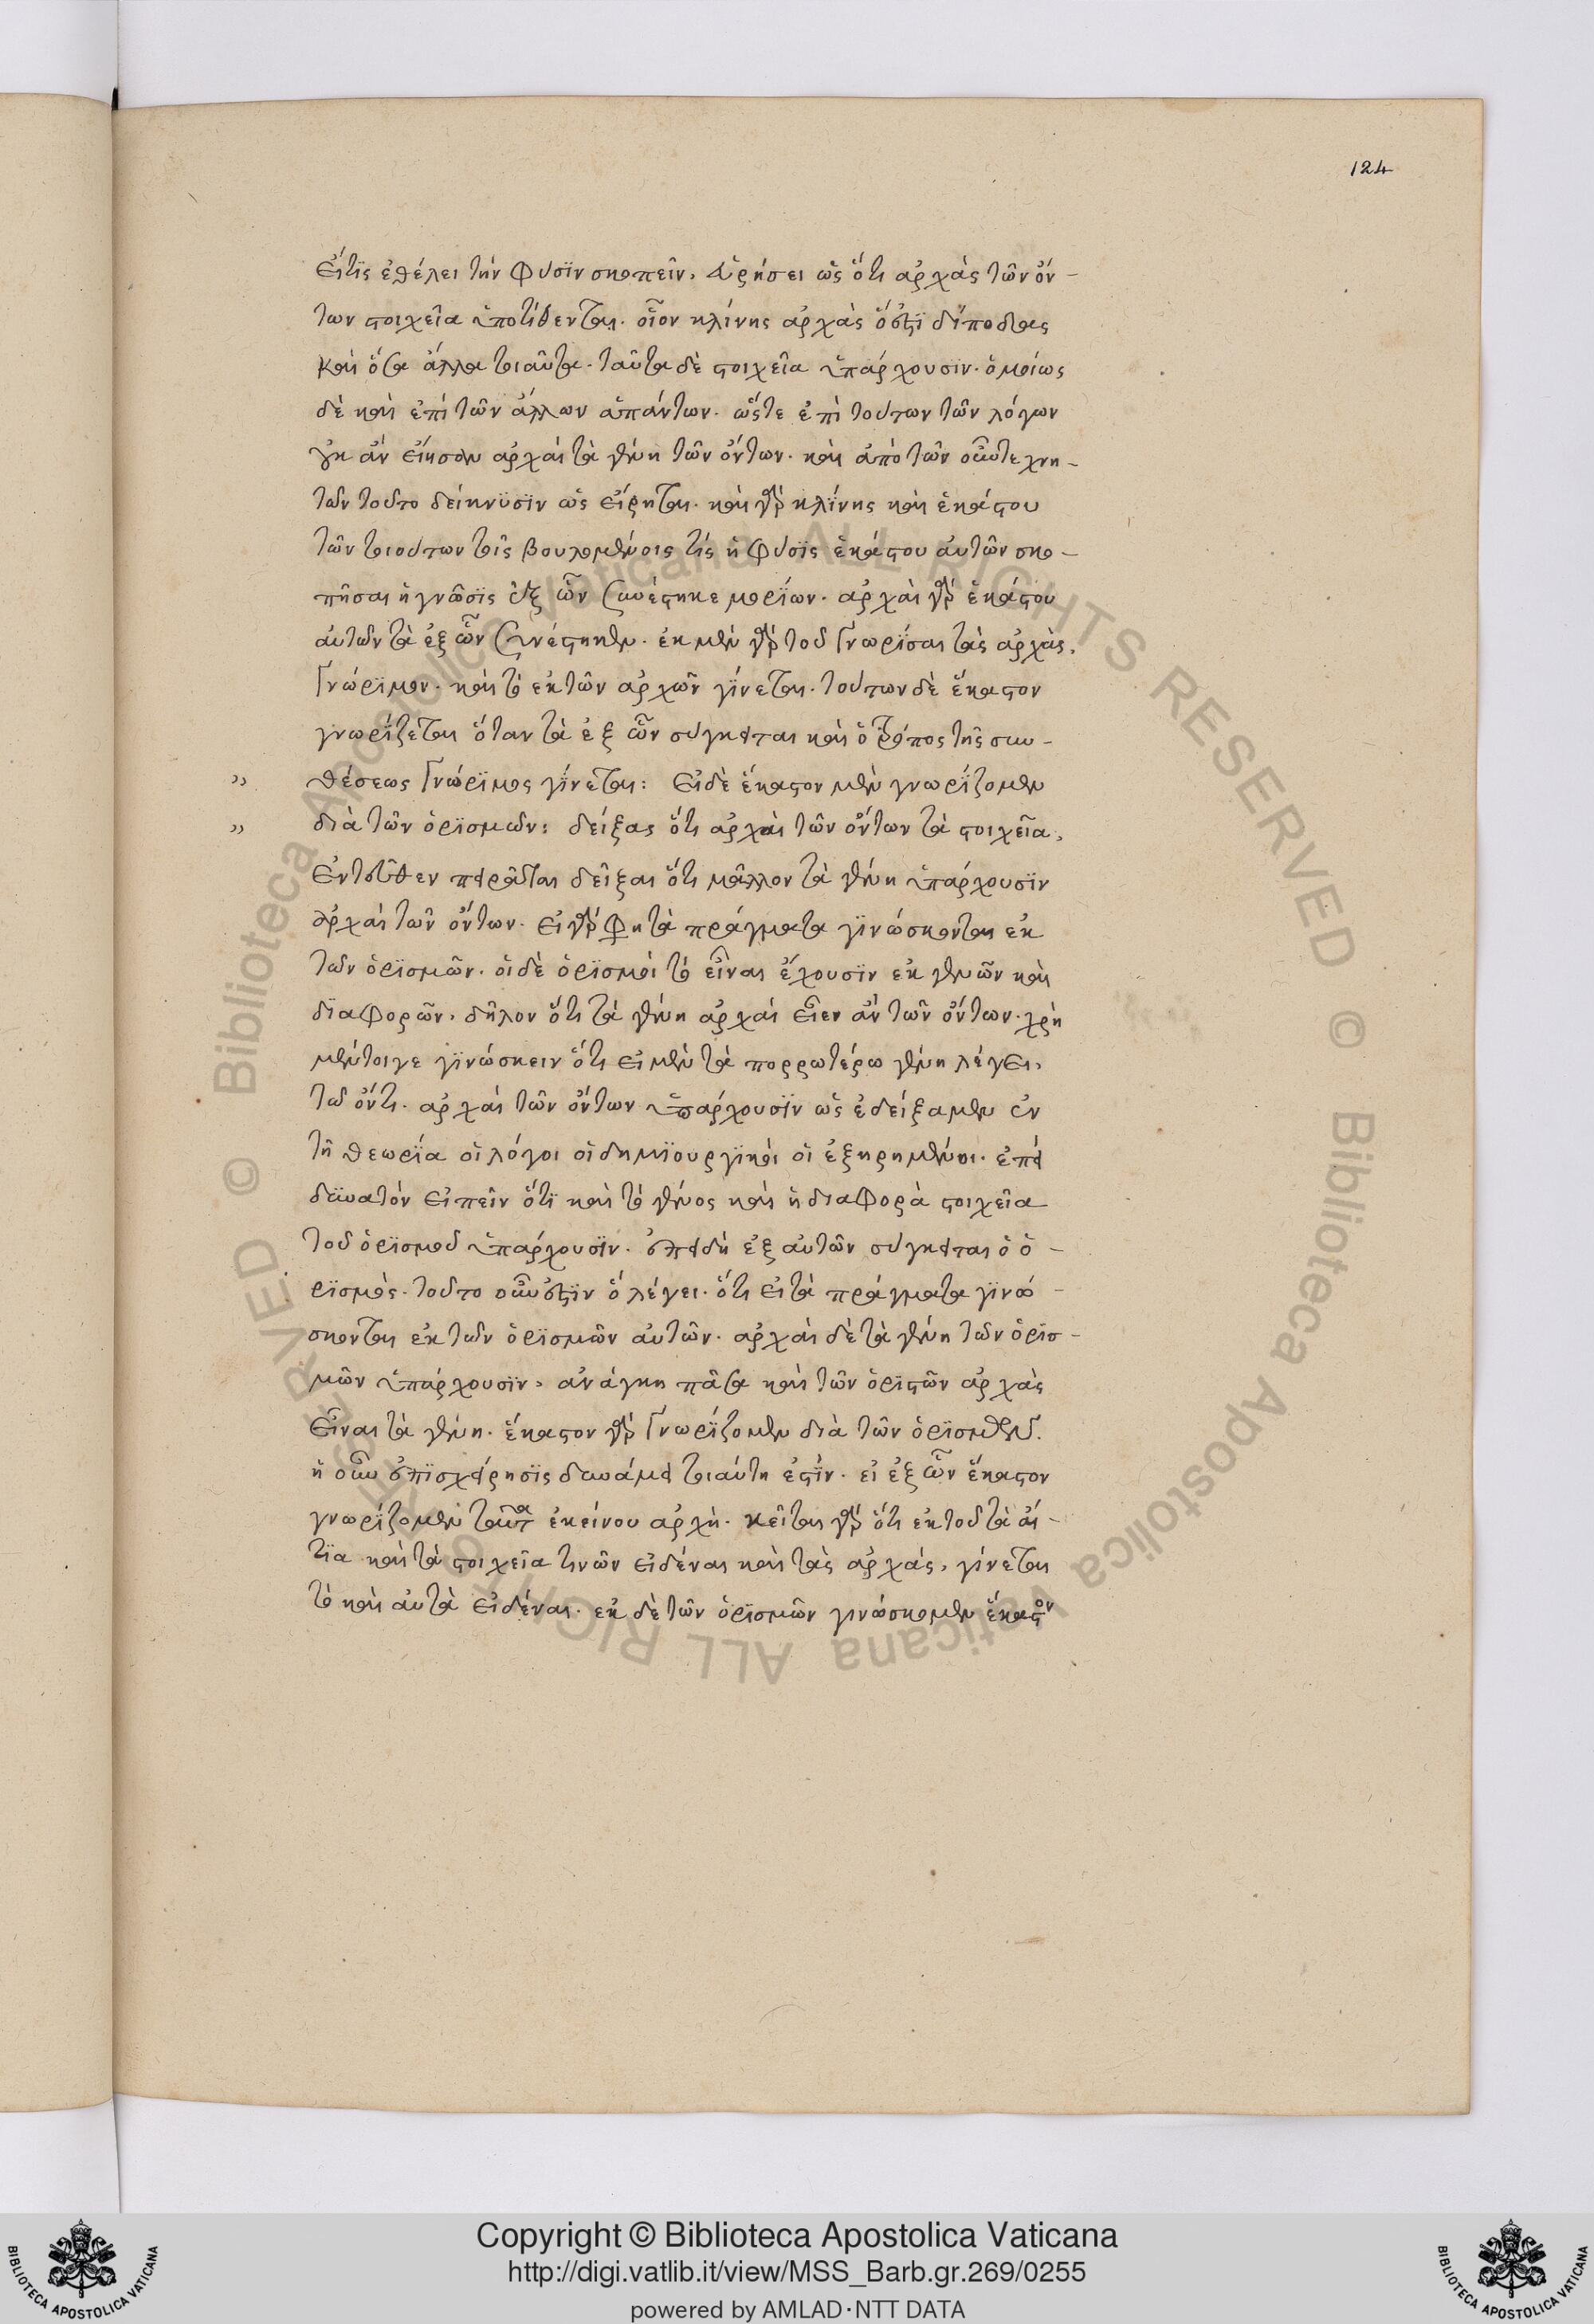 124
εἴτϊς ἐθέλει τὴν φύσϊν σκοπεῖν, εὑρήσει ὡς ὅτι ἀρχὰς τῶν ὄν -
των στοιχεῖα ὑποτίθενται. οἷον κλίνης ἀρχὰς
καὶ ὅσα ἄλλα τοιαῦτα. ταῦτα δὲ στοιχεῖα ὑπάρχουσϊν. ὁμοίως
δὲ καὶ ἐπὶ τῶν ἄλλων ἁπάντων. ὥστε ἐπὶ τούτων τῶν λόγων
οὐκ ἂν εἴησαν ἀρχαὶ τὰ γένη τῶν ὄντων. καὶ ἀπὸ τῶν οὖν τεχνη -
τῶν τοῦτο δείκνυσϊν ὡς εἴρηται. καὶ γὰρ κλΐνης καὶ ἑκάστου
τῶν τοιούτων τοῖς βουλομένοις τίς ἡ φύσϊς ἑκάστου αὐτῶν σκο -
πῆσαι ἡ γνῶσϊς ἐξ ὧν συνέστηκε μορίων. ἀρχαὶ γὰρ ἑκάστου
αὐτῶν τὰ ἐξ ὧν συνέστηκεν. ἐκ μὲν γὰρ τοῦ γνωρΐσαι τὰς ἀρχὰς,
γνώρϊμον. καὶ τὸ ἐκ τῶν ἀρχῶν γΐνεται. τούτων δὲ ἕκαστον
γνωρΐζεται ὅταν τὰ ἐξ ὧν σύγκειται καὶ ὁ τρόπος τῆς συν -
" θέσεως γνώρϊμος γΐνεται: εἰ δὲ ἕκαστον μὲν γνωρΐζομεν
" διὰ τῶν ὁρϊσμῶν: δείξας ὅτι ἀρχαὶ τῶν ὄντων τὰ στοιχεῖα,
ἐντεῦθεν πειρᾶται δεῖξαι ὅτι μᾶλλον τὰ γένη ὑπάρχουσϊν
ἀρχαὶ τῶν ὄντων. εἰ γάρ φη τὰ πράγματα γϊνώσκονται ἐκ
τῶν ὁρϊσμῶν. οἱ δὲ ὁρϊσμοὶ τὸ εἶναι ἔχουσϊν ἐκ γενῶν καὶ
δϊαφορῶν, δῆλον ὅτι τὰ γένη ἀρχαὶ εἶεν ἂν τῶν ὄντων. χρὴ
μέντοιγε γϊνώσκειν ὅτι εἰ μὲν τὰ πορρωτέρω γένη λέγει,
τῷ ὄντι. ἀρχαὶ τῶν ὄντων ὑπάρχουσϊν ὡς ἐδείξαμεν ἐν
τῇ θεωρΐα οἱ λόγοι οἱ δημϊουργϊκοὶ οἱ ἐξῃρημένοι. ἐπεὶ
δϋνατὸν εἰπεῖν ὅτϊ καὶ τὸ γένος καὶ ἡ διαφορὰ στοιχεῖα
τοῦ ὁρϊσμοῦ ὑπάρχουσϊν. ἐπειδὴ ἐξ αὐτῶν σύγκειται ὁ ὁ -
ρϊσμὸς. τοῦτο οὖν ἐστϊν ὃ λέγει. ὅτι εἰ τὰ πράγματα γϊνώ -
σκονται ἐκ τῶν ὁρϊσμῶν αὐτῶν. ἀρχαὶ δὲ τὰ γένη τῶν ὁρϊσ -
μῶν ὑπάρχουσϊν, ἀνάγκη πᾶσα καὶ τῶν ὁρϊστῶν ἀρχὰς
εἶναι τὰ γένη. ἕκαστον γὰρ γνωρΐζομεν διὰ τῶν ὁρϊσμῶν.
ἡ οὖν ἐπϊχείρησϊς δυνάμει τοιαύτη ἐστΐν. εἰ ἐξ ὧν ἕκαστον
γνωρΐζομεν ταῦτα ἐκείνου ἀρχὴ. κεῖται γὰρ ὅτι ἐκ τοῦ τὰ αἴ -
τϊα καὶ τὰ στοιχεῖα τινῶν εἰδέναι καὶ τὰς ἀρχάς, γίνεται
τὸ καὶ αὐτὰ εἰδέναι. ἐκ δὲ τῶν ὁρϊσμῶν γινώσκομεν ἕκαστον
© Biblioteca Apostolica Vaticana ALL RIGHTS RESERVED
© Biblioteca Apostolica Vaticana ALL RIGHTS RESERVED
Copyright © Biblioteca Apostolica Vaticana
http://digi.vatlib.it/view/MSS_Barb.gr.269/0255
powered by AMLAD·NTT DATA
BIBLIOTECA APOSTOLICA VATICANA
BIBLIOTECA APOSTOLICA VATICANA